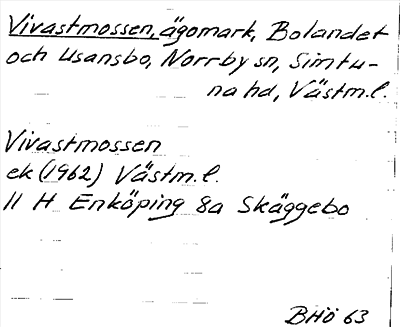 Vivastmossen, ägomark, Bolandet
och Usansbo, Norrby sn, Simtu-
na hd, Västm.l.
Vivastmossen
ek (1962) Västm.l.
11 H Enköping 8a Skäggebo
BHÖ 63